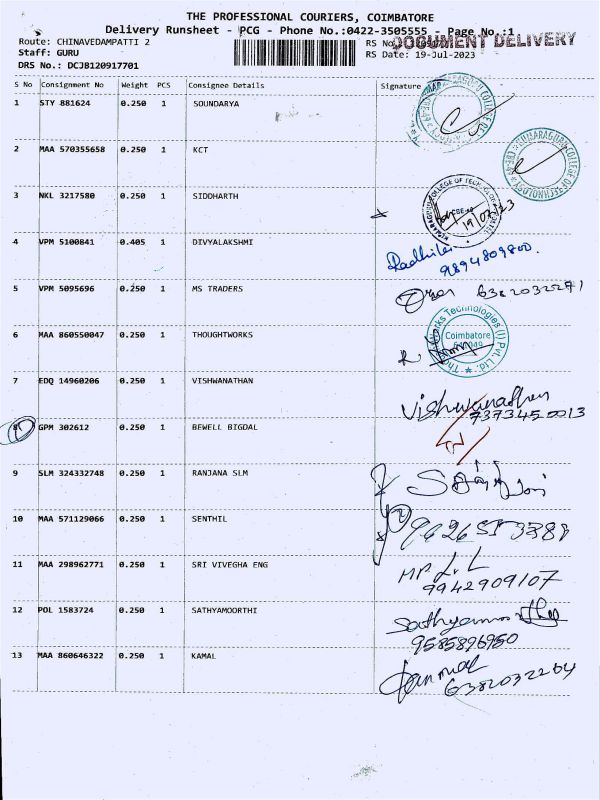 THE PROFESSIONAL COURIERS, COIMBATORE
Delivery Runsheet - PCG - Phone No.:0422-3505555 - Page No.:1
Route: CHINAVEDAMPATTI 2 RS No.
DOCUMENT DELIVERY
Staff: GURU RS Date: 19-Jul-2023
DRS No.: DCJB120917701
S No Consignment No Weight PCS Consignee Details Signature
1 STY 881624 0.250 1 SOUNDARYA
2 MAA 570355658 0.250 1 KCT
3 NKL 3217580 0.250 1 SIDDHARTH 19/07/23
4 VPM 5100841 0.405 1 DIVYALAKSHMI 9894809800
5 VPM 5095696 0.250 1 MS TRADERS 6382032271
6 MAA 860550047 0.250 1 THOUGHTWORKS
Technologies (I) Pvt. Ltd.
Coimbatore
7 EDQ 14960206 0.250 1 VISHWANATHAN Vishwanathan
7373450013
8 GPM 302612 0.250 1 BEWELL BIGDAL
9 SLM 324332748 0.250 1 RANJANA SLM
10 MAA 571129066 0.250 1 SENTHIL
11 MAA 298962771 0.250 1 SRI VIVEGHA ENG
9942909107
12 POL 1583724 0.250 1 SATHYAMOORTHI
9585896950
13 MAA 860646322 0.250 1 KAMAL
6382032264